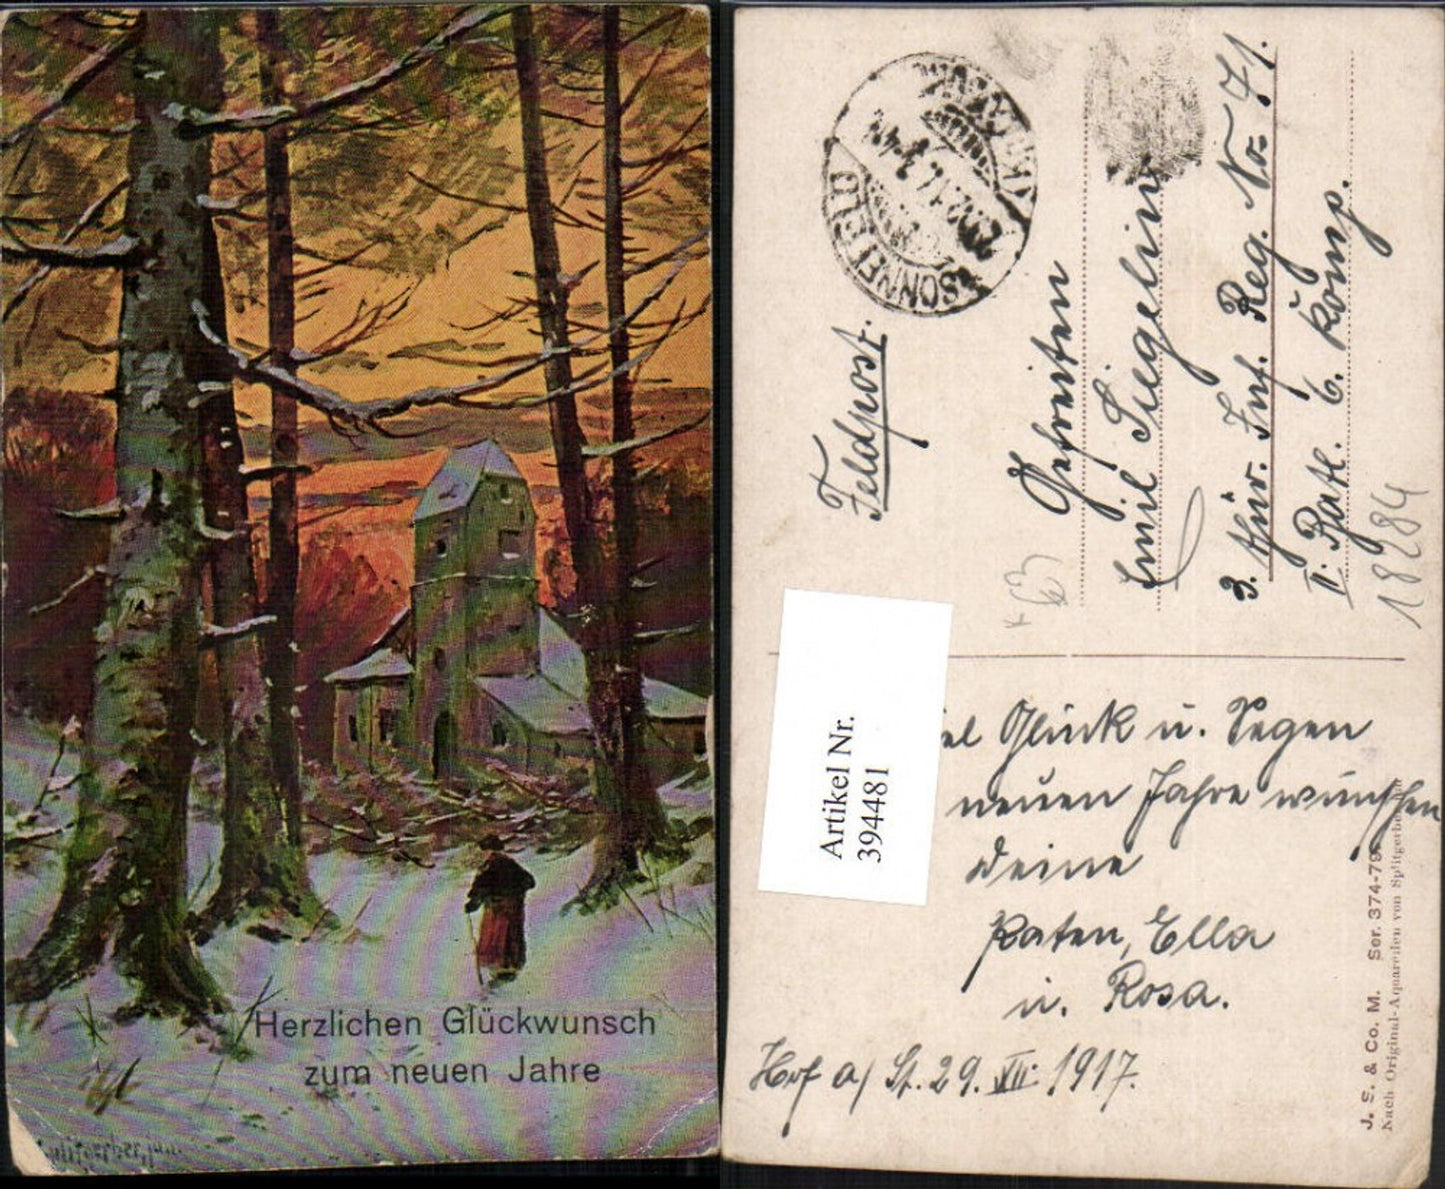 Herzlichen Glückwunsch
zum neuen Jahre
Feldpost.
SONNEFELD
Gefreiten
Emil Siegelin
3. Thür. Inf. Reg. No= 71.
II. Batl. 6. Komp.
18284
63
Artikel Nr.
394481
el Glück u. Segen
neuen Jahre wünschen
Deine
Paten, Ella
u. Rosa.
Hof a/ St. 29. XII. 1917.
J. S. & Co. M. Ser. 374-79
Nach Original-Aquarellen von Splitgerber